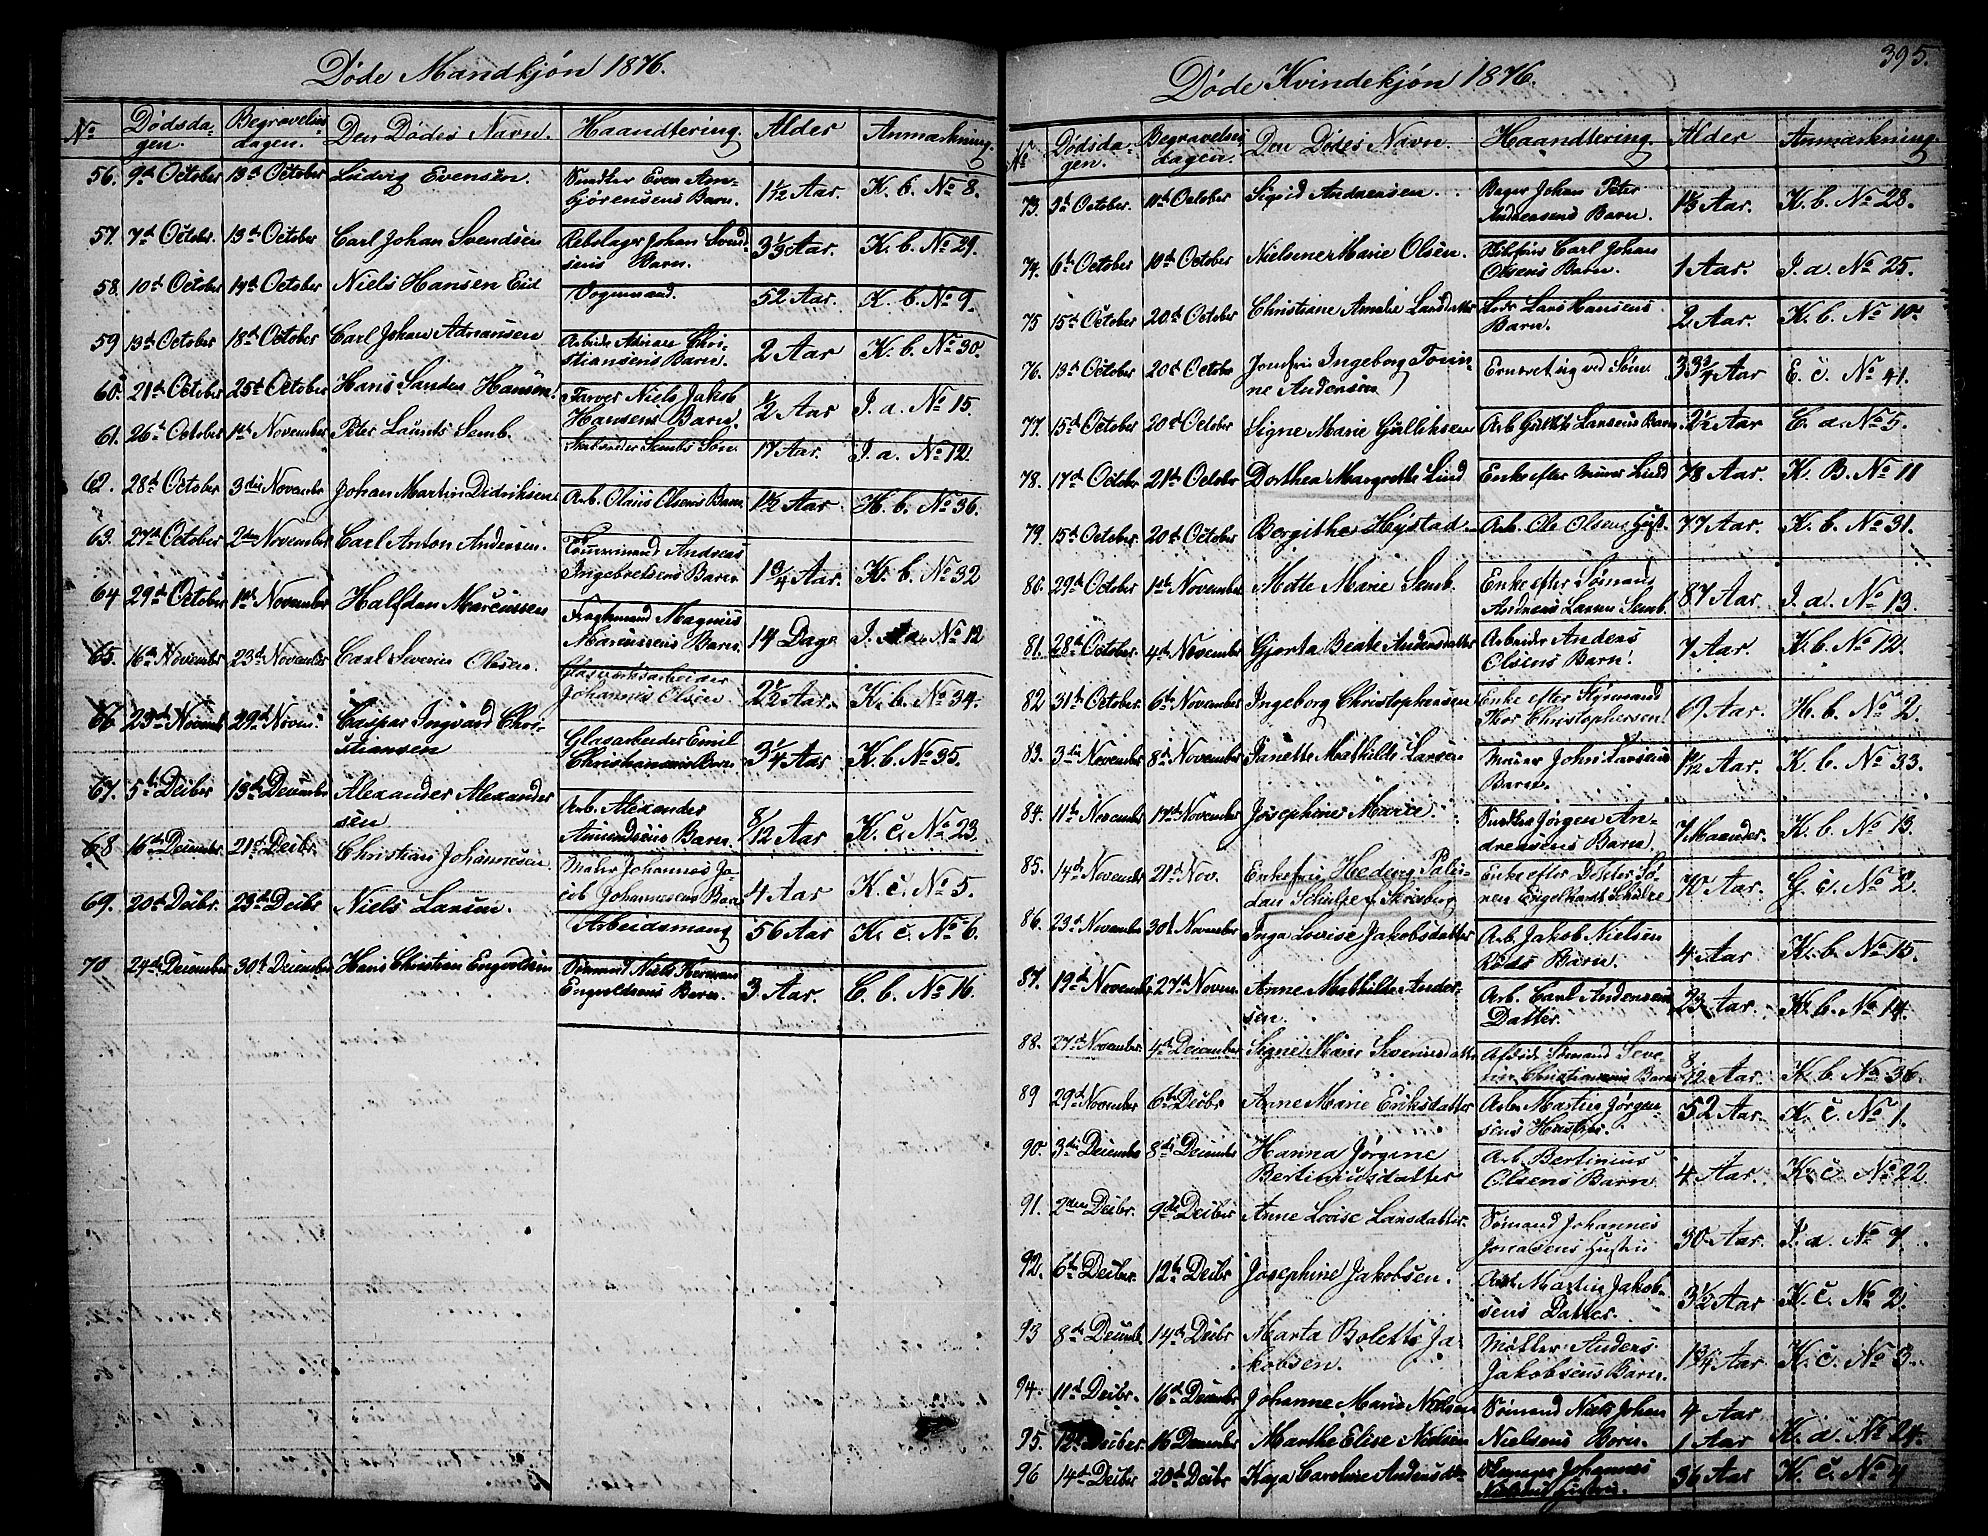 Døde Mandkjön 1876.
No
Dødsda-
gen.
Begravelses-
dagen.
Den Dødes Navn.
Haandtering.
Alder
Anmærkning.
56. 9de October 13de October Ludvig Evensen. Snedker Even An-
gjörensens Barn. 1 1/2 Aar. K. b. No 8.
57. 7de October. 13de October Carl Johan Svendsen Rebslager Johan Svend-
sens Barn. 3 1/3 Aar. K. b. No 29.
58. 10de October 14de October Niels Hansen Eid Vognmand. 52 Aar. K. b. No 9.
59 13de October 18de October Carl Johan Adriansen Arbeider Adrian Chri-
stiansens Barn. 2 Aar K. b. No 30.
60. 21de October 25de October Hans Sander Hansen. Farver Niels Jakob
Hansens Barn. 1/2 Aar I. a. No 15.
61. 26de October 1ste November Peter Laurits Semb. Sembs Søn. 17 Aar. I. a. No 12.
62. 28de October 3die November Johan Martin Didriksen Arb. Olaus Olsens Barn 1 1/2 Aar K. b. No 36.
63. 27de October 2den November Carl Anton Andersen. Tömmermand Andreas
Ingebretsens Barn. 1 3/4 Aar. K. b. No 32
64 29de October 1ste November Halfdan Marcussen Fragtmand Magnus
Marcussens Barn. 14 Dage I. a. No 12
65. 16de November 23de November Carl Severin Olsen. Glasværksarbeider
Johannes Olsen 2 1/2 Aar. K. b. No 34.
66 23de Novemb 29de Novem. Caspar Ingvard Chri-
stiansen Glasarbeider Emil
Christiansens Barn 3 1/4 Aar K. b. No 35.
67. 5te Decber 13de December Alexander Alexander
sen Arb. Alexander
Amundsens Barn. 8/12 Aar K. c. No 23.
68 16de December 21de Decbr. Christian Johannesen. Maler Johannes Ja-
cob Johannesens Barn 4 Aar K. c. No 5.
69. 20de Decbr. 23de Decbr Niels Larsen. Arbeidsmand 56 Aar K. c. No 6.
70 24de December 30te December Hans Christian Engvoldsen Sömand Niels Herman
Engvoldsens Barn. 3 Aar. C. b. No 16.
395.
Døde Kvindekjön 1876.
No
Dødsda-
gen.
Begravelses
dagen.
Den Dødes Navn.
Haandtering.
Alder
Anmærkning.
73. 5te October. 11te October Sigrid Andreensen. Bager Johan Peter
Andreasens Barn. 1 1/3 Aar. K. b. No 28.
74. 6te October 10de October Nielsine Marie Olsen. Carl Johan
Olsens Barn. 1 Aar. I. a. No 25.
75 15de October 20de October Christiane Amalie Larsdatter Lods Lars Hansens
Barn. 2 Aar. K. b. No 10.
76. 13de October 20de October Jomfru Ingeborg Tomi-
ne Andersen Ernæret sig ved Söm. 33 3/4 Aar E. c. No 41.
77. 15de October 20de October Signe Marie Gulliksen Arb. Gullik Larsens Barn 2 1/2 Aar C. a. No 5.
78. 17de October 21de October Dorthea Margrethe Lund Enke efter Murer Lund 78 Aar. K. B. No 11
79. 15de October 20de October Bergithe Hystad Arb. Ole Olsens Hust. 77 Aar. K. b. No 31.
80. 29de October 1ste November Mette Marie Semb. Enke efter Sömand
Andreas Larsen Semb. 87 Aar. I. a. No 13.
81. 28de October. 4de November Gjorta Beate Andersdatter Arbeider Anders
Olsens Barn. 7 Aar. K. b. No 12.
82. 31te October 6te November Ingeborg Christophersen Enke efter Styrmand
Thor Christophersen 69 Aar. H. b. No 2.
83. 3die November 8de November Janette Mathilde Larsen Murer John Larsens
Barn. 1 1/2 Aar. K. b. No 33.
84. 11te November 17de November Josephine Marie. Snedker Jörgen An-
dreasens Barn 7 Maaneder. K. b. No 13.
85. 14de November 21de Nov. Enkefru Hedvig Palu-
dan Schultze f. Enke efter
Engelhardt Schultze 70 Aar. G. c. No 2.
86. 23de November 30te November Inga Lovise Jakobsdatter Arb. Jakob Nielsen
Röds Barn. 4 Aar K. b. No 15.
87. 19de November 27de Novem. Anne Mathilde Ander-
sen. Arb. Carl Andersens
Datter. 23 Aar. K. b. No 14.
88. 27de November. 4de December Signe Marie Severinsdatter Afdöde Sömand Seve-
rin Christiansens Barn 8/12 Aar. K. b. No 36.
89 29de November 6te Decbr Anne Marie Eriksdatter Arb. Martin Jörgen-
sens Hustru. 52 Aar. K. c. No 1.
90. 3die December 8de December Hanna Jörgine
Bertiniusdatter Arb. Bertinius
Olsens Barn. 4 Aar. K. c. No 22
91. 2den Decbr. 9de Decber Anne Lovise Larsdatter. Sömand Johannes
Jonasens Hustru 30 Aar. I. a. No 7.
92. 6te Decbr. 12te Decbr Josephine Jakobsen. Arb. Martin Jakob-
sens Datter. 3 1/2 Aar K. c. No 2.
93 8de Decemb. 14de Decbr Marta Bolette Ja-
kobsen. Möller Anders
Jakobsens Barn. 1 3/4 Aar K. c. No 3.
94. 11te Decbr. 16de December Johanne Marie Nielsen Sömand Niels Johan 4 Aar
95. 12te Decber. 16 December Marthe Elise Nielsen Nielsens Børn. 1 Aar K. a. No 24.
96 14de Decbr 20de Decbr Kaja Caroline Andersdtr. Johannes
Hustru. 36 Aar K. c. No 4